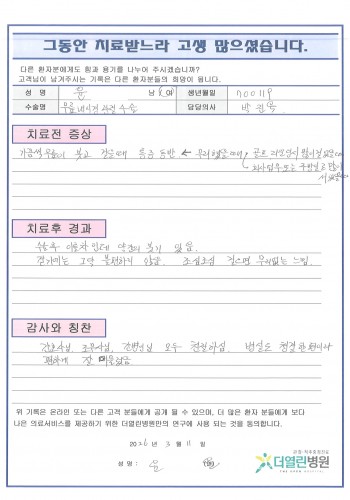 그동안 치료받느라 고생 많으셨습니다.
다른 환자분에게도 힘과 용기를 나누어 주시겠습니까?
고객님이 남겨주시는 기록은 다른 환자분들의 희망이 됩니다.
성 명 윤 남 생년월일 700119
수술명 무릎내시경 관절수술 담당의사 박
치료전 증상
가끔씩 무릎이 붓고 걸을때 통증 동반. ← 무리했을때
치료후 경과
수술후 이틀차인데 약간의 붓기 있음.
걷기에는 그닥 불편하지 않음. 조심조심 걸으면 무리없는 느낌.
감사와 칭찬
간호사님, 조무사님, 선생님 모두 친절하심. 병실도 청결한 편이라
편하게 잘 머물렀음.
위 기록은 온라인 또는 다른 고객 분들에게 공개 될 수 있으며, 더 많은 환자 분들에게 보다
나은 의료서비스를 제공하기 위한 더열린병원만의 연구에 사용 되는 것을 동의합니다.
2026년 3월 11일
성 명 : 윤
더열린병원
THE OPEN HOSPITAL